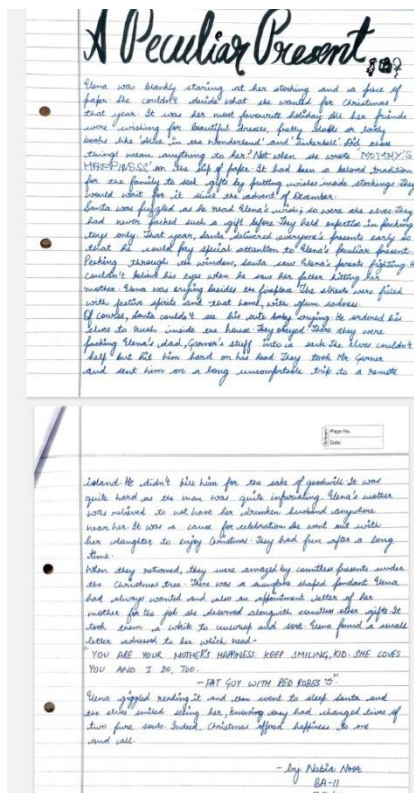 A Peculiar Present
Elena was blankly staring at her stocking and a piece of
paper. She couldn't decide what she wanted for Christmas
that year. It was her most favourite holiday. All her friends
were wishing for beautiful dresses, pretty dolls or lovely
books like 'Alice in the wonderland' and 'Tinkerbell'. Did these
things mean anything to her? Not when she wrote 'MOMMY'S
HAPPINESS' on the slip of paper. It had been a beloved tradition
for the family to seek gifts by putting wishes inside stockings. They
would wait for it since the advent of December.
Santa was puzzled as he read Elena's wish; so were the elves. They
had never packed such a gift before. They held expertise in packing
toys only. That year, Santa delivered everyone's presents early so
that he could pay special attention to Elena's peculiar present.
Peeking through the window, Santa saw Elena's parents fighting. He
couldn't believe his eyes when he saw her father hitting her
mother. Elena was crying besides the fireplace. The streets were filled
with festive spirits and that home, with glum sadness.
Of course, Santa couldn't see his cute baby crying. He ordered his
elves to rush inside the house. They obeyed. There they were
packing Elena's dad, Garner's stuff into a sack. The elves couldn't
help but hit him hard on his head. They took Mr. Garner
and sent him on a long uncomfortable trip to a remote
Page No.
Date:
island. He didn't kill him for the sake of goodwill. It was
quite hard as the man was quite infuriating. Elena's mother
was relieved to not have her drunken husband anywhere
near her. It was a cause for celebration. She went out with
her daughter to enjoy Christmas. They had fun after a long
time.
When they returned, they were amazed by countless presents under
the Christmas tree. There was a shaped pendant Elena
had always wanted and also an appointment letter of her
mother for the job she deserved alongwith countless other gifts. It
took them a while to unwrap and sort. Elena found a small
letter addressed to her which read-
"YOU ARE YOUR MOTHER'S HAPPINESS. KEEP SMILING, KID. SHE LOVES
YOU AND I DO, TOO.
- FAT GUY WITH RED ROBES"
Elena giggled reading it and then went to sleep. Santa and
the elves smiled seeing her, knowing they had changed lives of
two pure souls. Indeed, Christmas offered happiness to one
and all.
- by Nabia Noor
BA-II